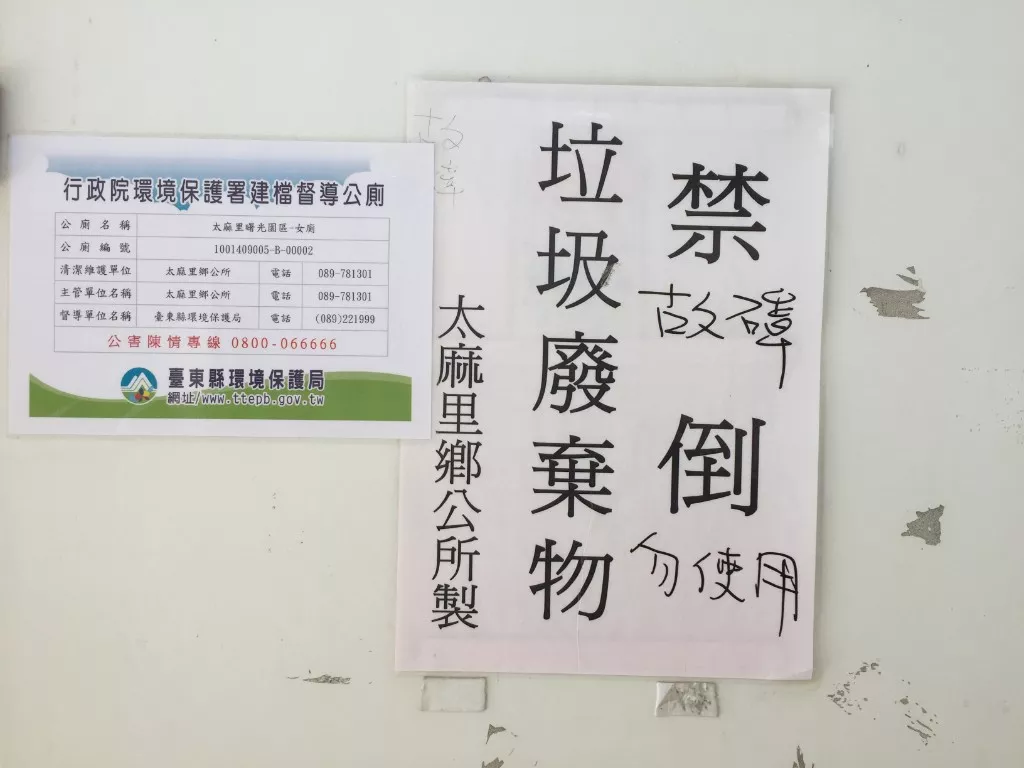 行政院環境保護署建檔督導公廁
公廁名稱 太麻里曙光園區-女廁
公廁編號 1001409005-B-00002
清潔維護單位 太麻里鄉公所 電話 089-781301
主管單位名稱 太麻里鄉公所 電話 089-781301
督導單位名稱 臺東縣環境保護局 電話 (089)221999
公害陳情專線 0800-066666
臺東縣環境保護局
網址/www.ttepb.gov.tw
禁倒
垃圾廢棄物
太麻里鄉公所製
故障
勿使用
故障